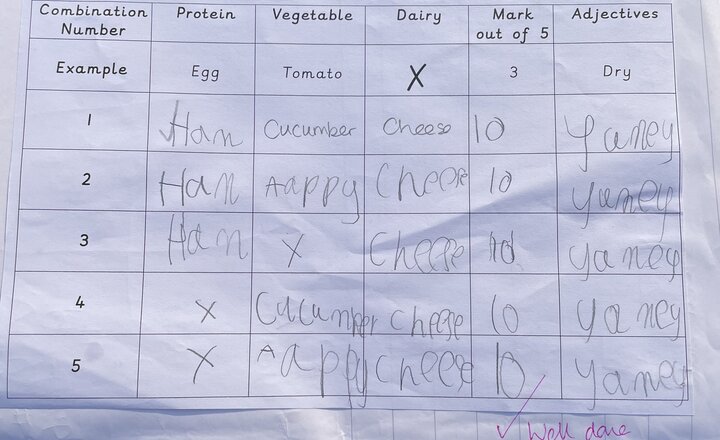 Combination Number Protein Vegetable Dairy Mark out of 5 Adjectives
Example Egg Tomato X 3 Dry
1 Ham Cucumber Cheese 10 Yamey
2 Ham Aappy Cheese 10 yamey
3 Ham X Cheese 10 yamey
4 X Cucumber cheese 10 yamey
5 X Aappy cheese 10 yamey
✓ Well done